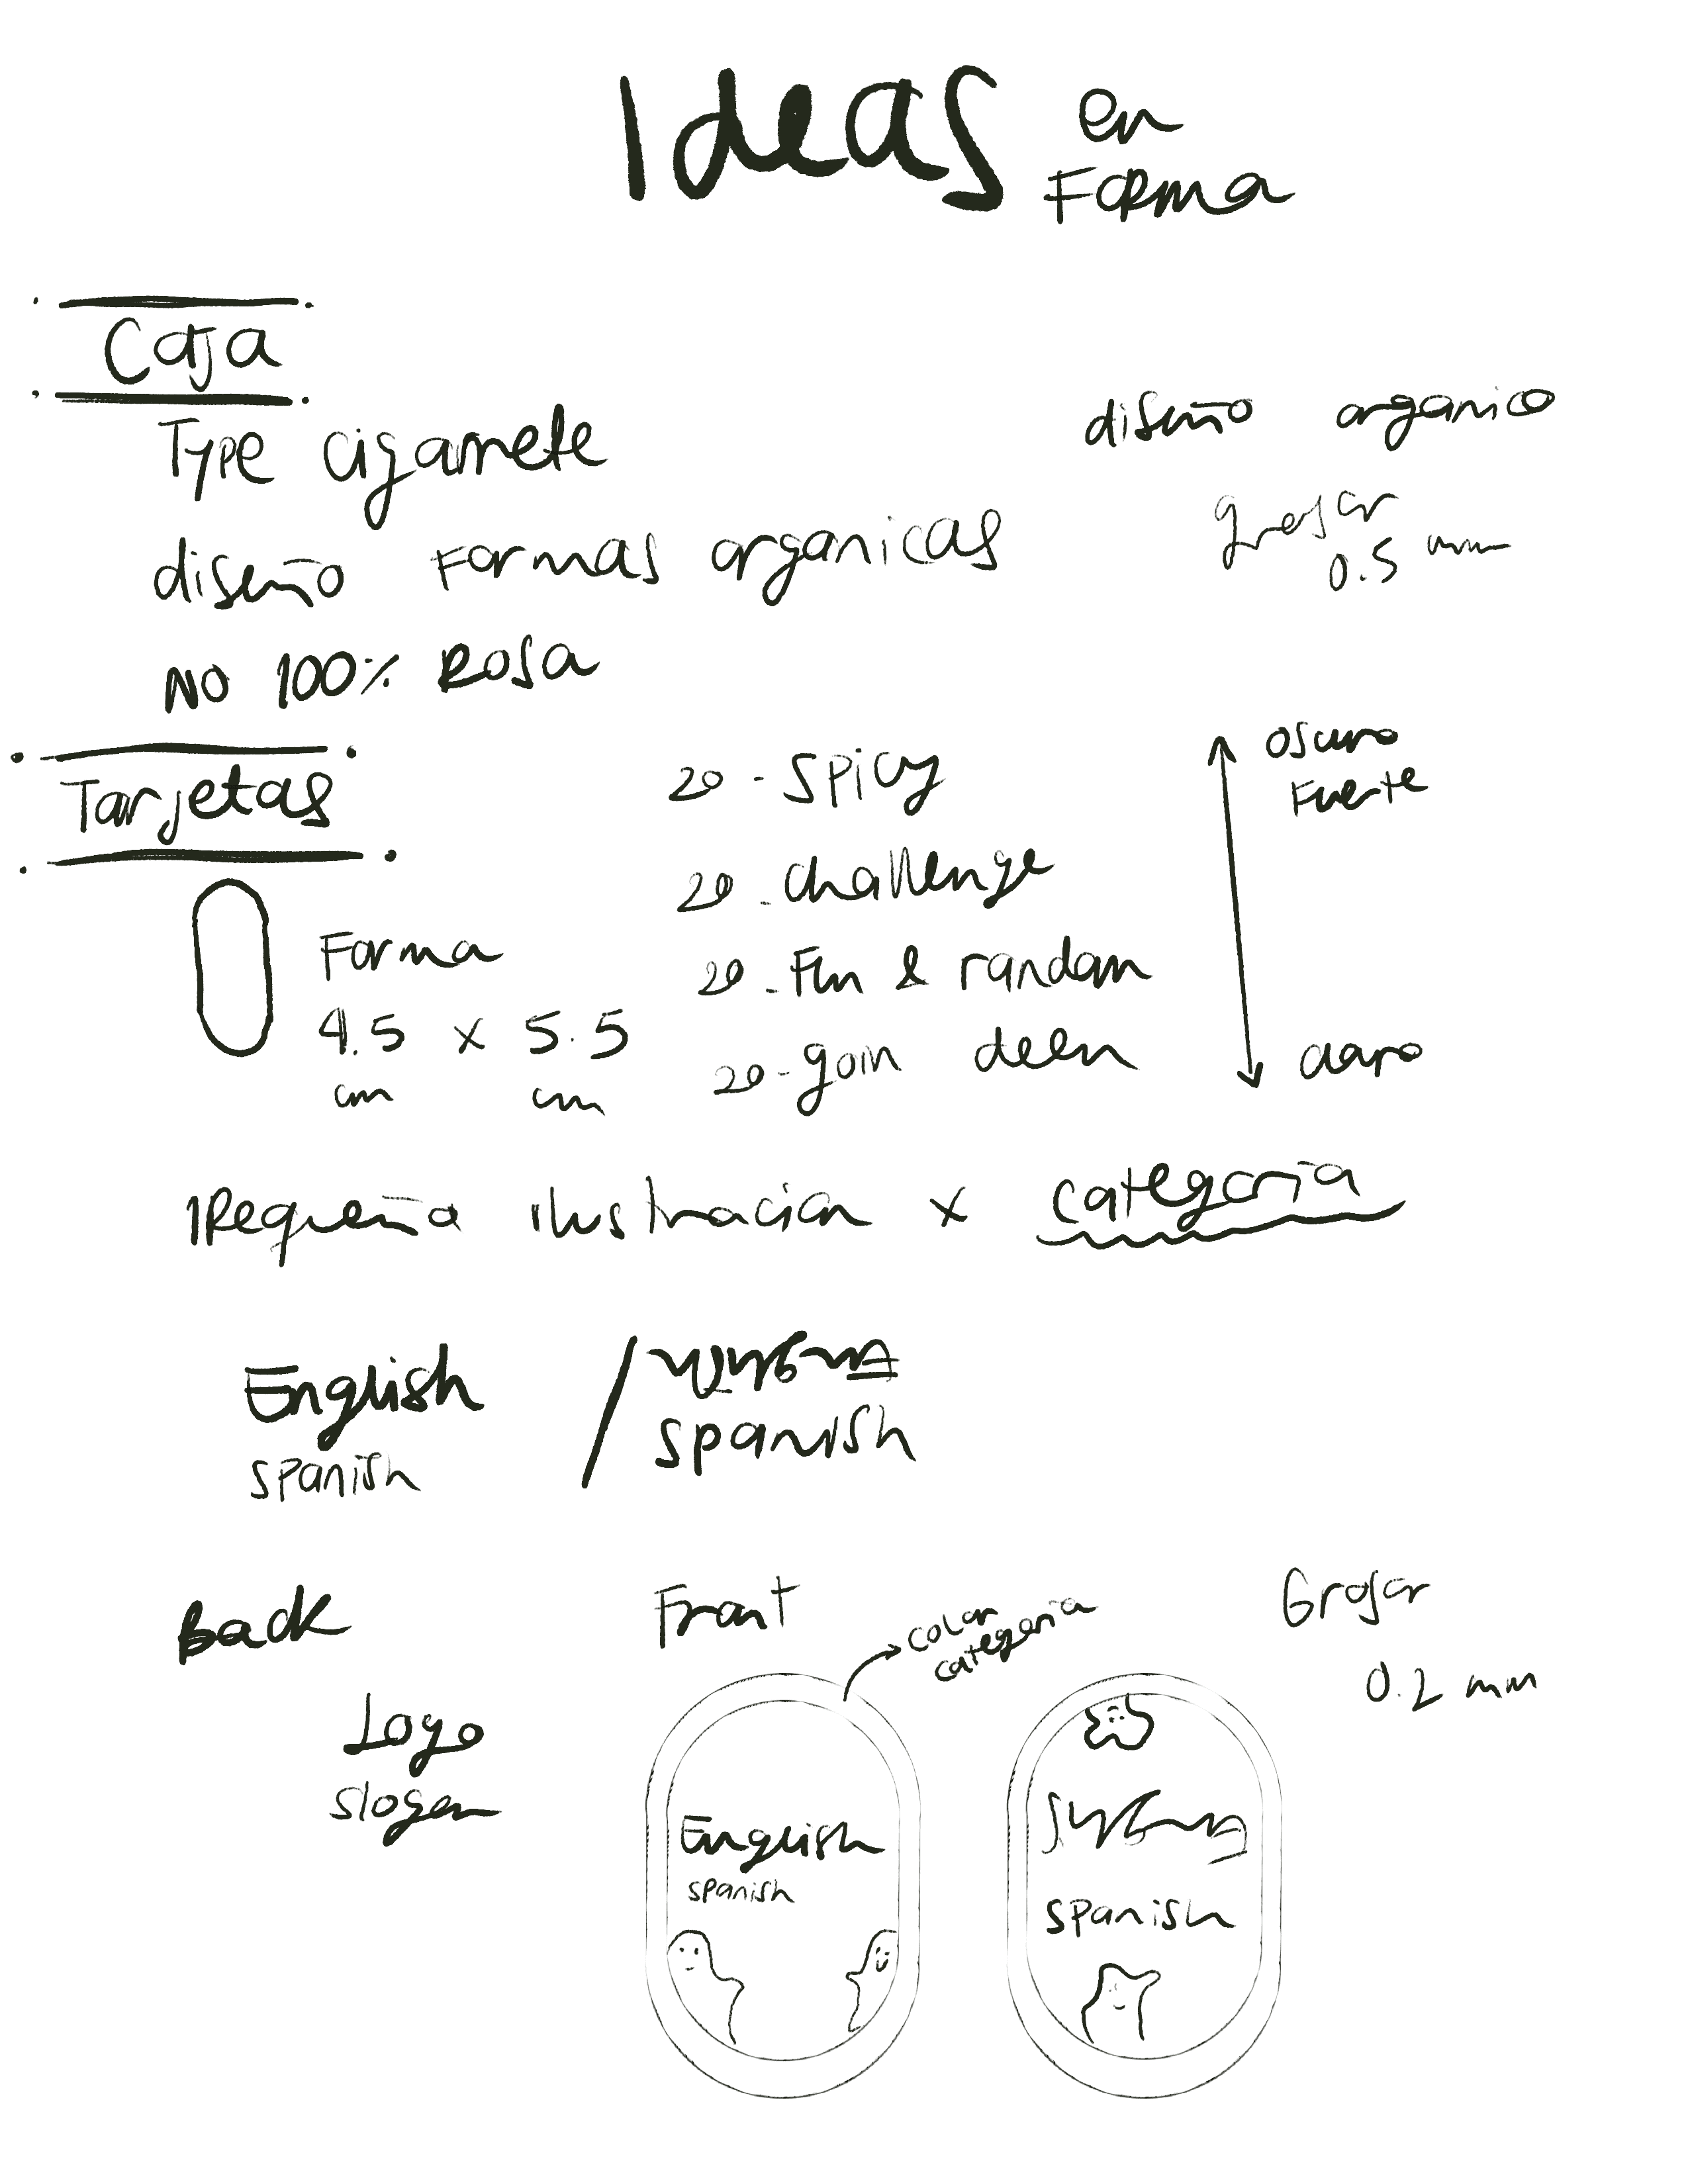 Ideas en Forma
Caja
Type cigarrete
diseño formas organicas
NO 100% Rosa
diseño organico
grosor
0.5 mm
Tarjetas
Forma
4.5 x 5.5
cm cm
20 - Spicy
20 - Challenge
20 - Fun & random
20 - goin deen
oscuro
Fuerte
claro
Pequeña ilustracion x categoria
English
spanish
/
spanish
Back
Logo
slogan
Front
color
categoria
English
spanish
spanish
Grosor
0.2 mm